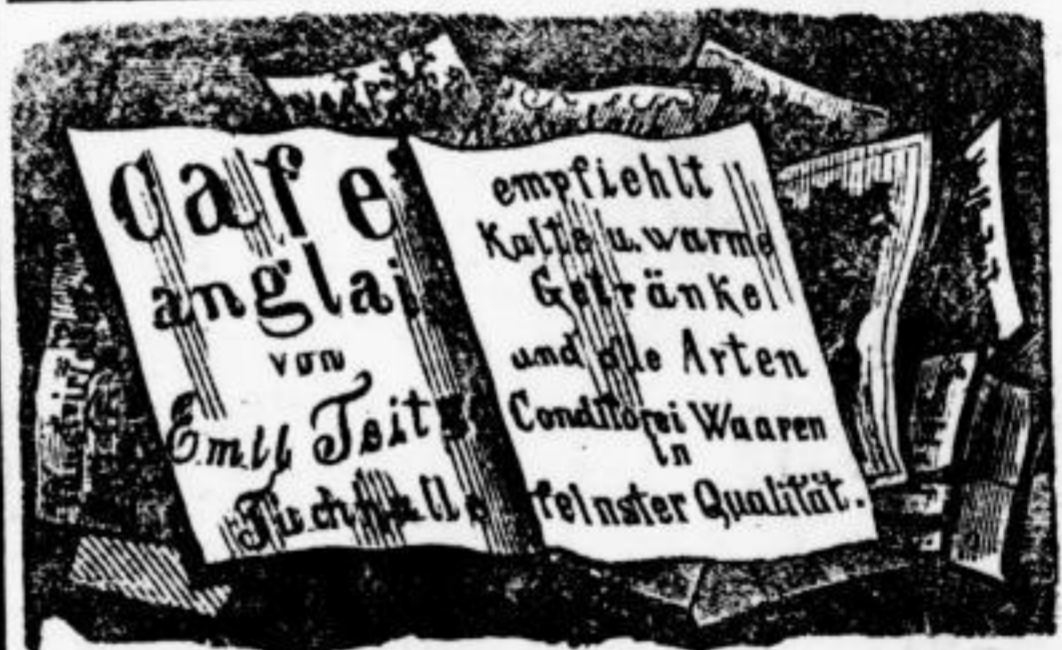 Cafe
anglai
von
Emil Tsitz
Tuchhalle
empfiehlt
Kalte u. warme
Getränke
und alle Arten
Conditorei Waaren
in
feinster Qualität.